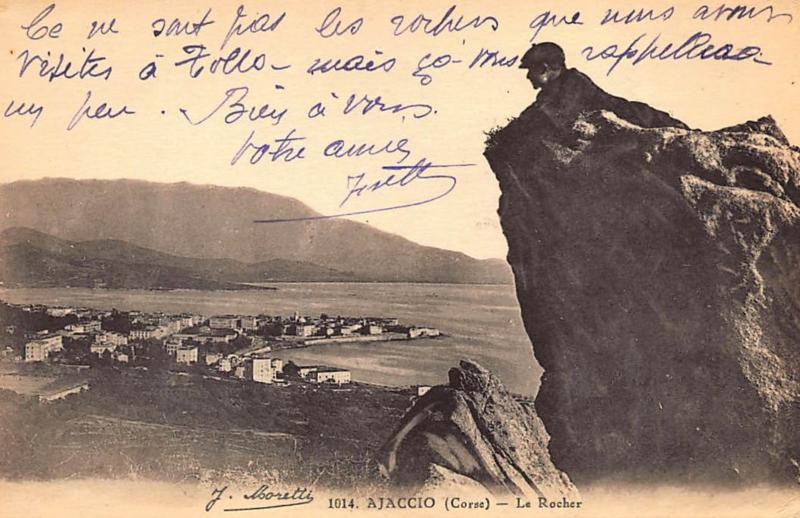 Ce ne sont pas les rochers que nous avons
visités à Tolla - mais ça vous rappellera
un peu. Bien à vous.
Votre amie
J. Moretti 1014. AJACCIO (Corse) — Le Rocher